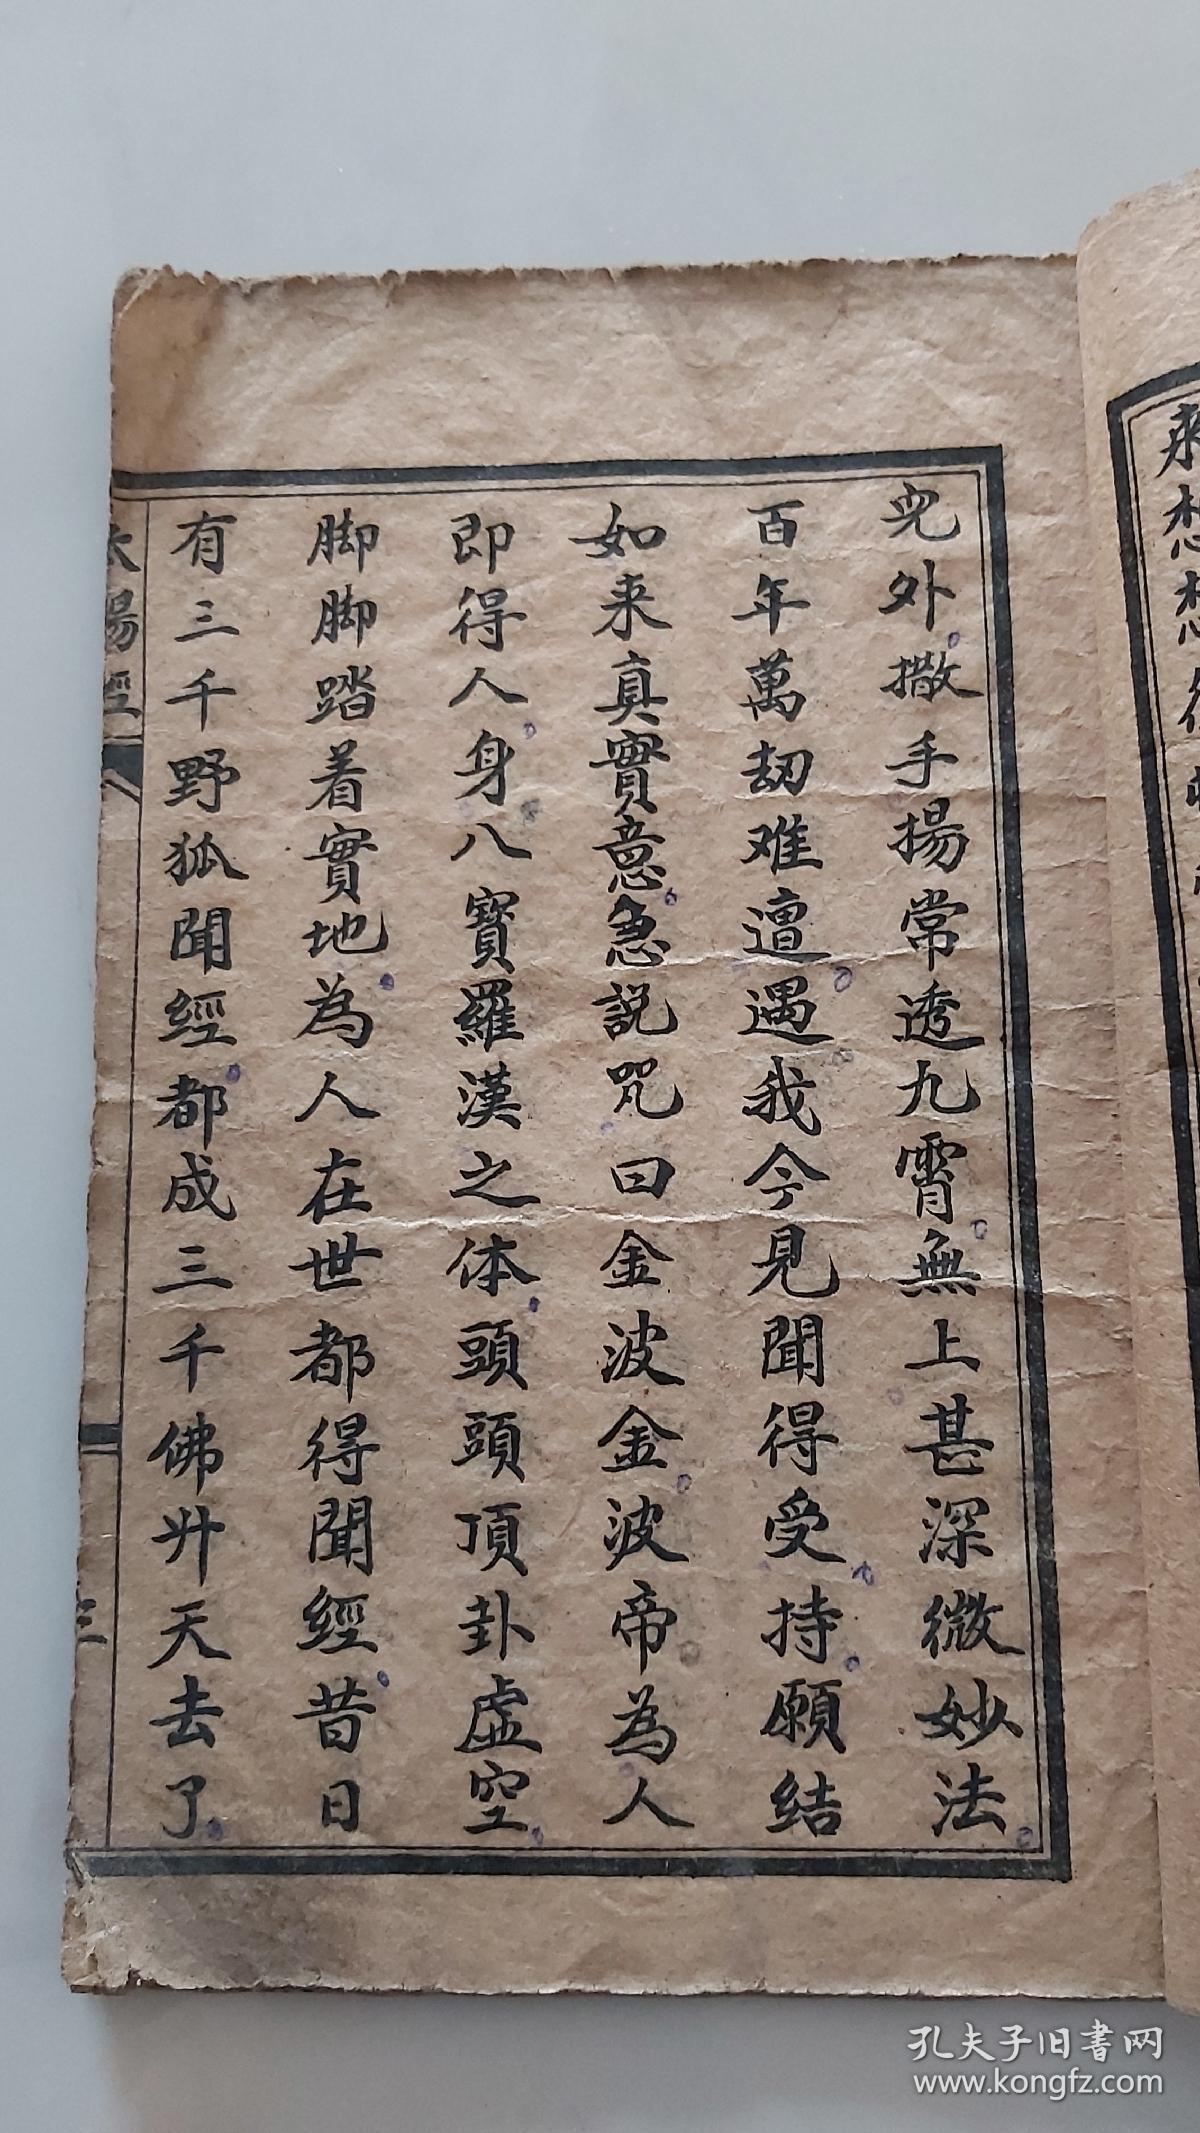 兜外撒手揚常透九霄無上甚深微妙法
百年萬劫难遭遇我今見聞得受持願結
如来真實意急説咒曰金波金波帝為人
即得人身八寳羅漢之体頭頭頂卦虛空
脚脚踏着實地為人在世都得聞經昔日
有三千野狐聞經都成三千佛升天去了
太陽經
三
孔夫子旧书网
www.kongfz.com